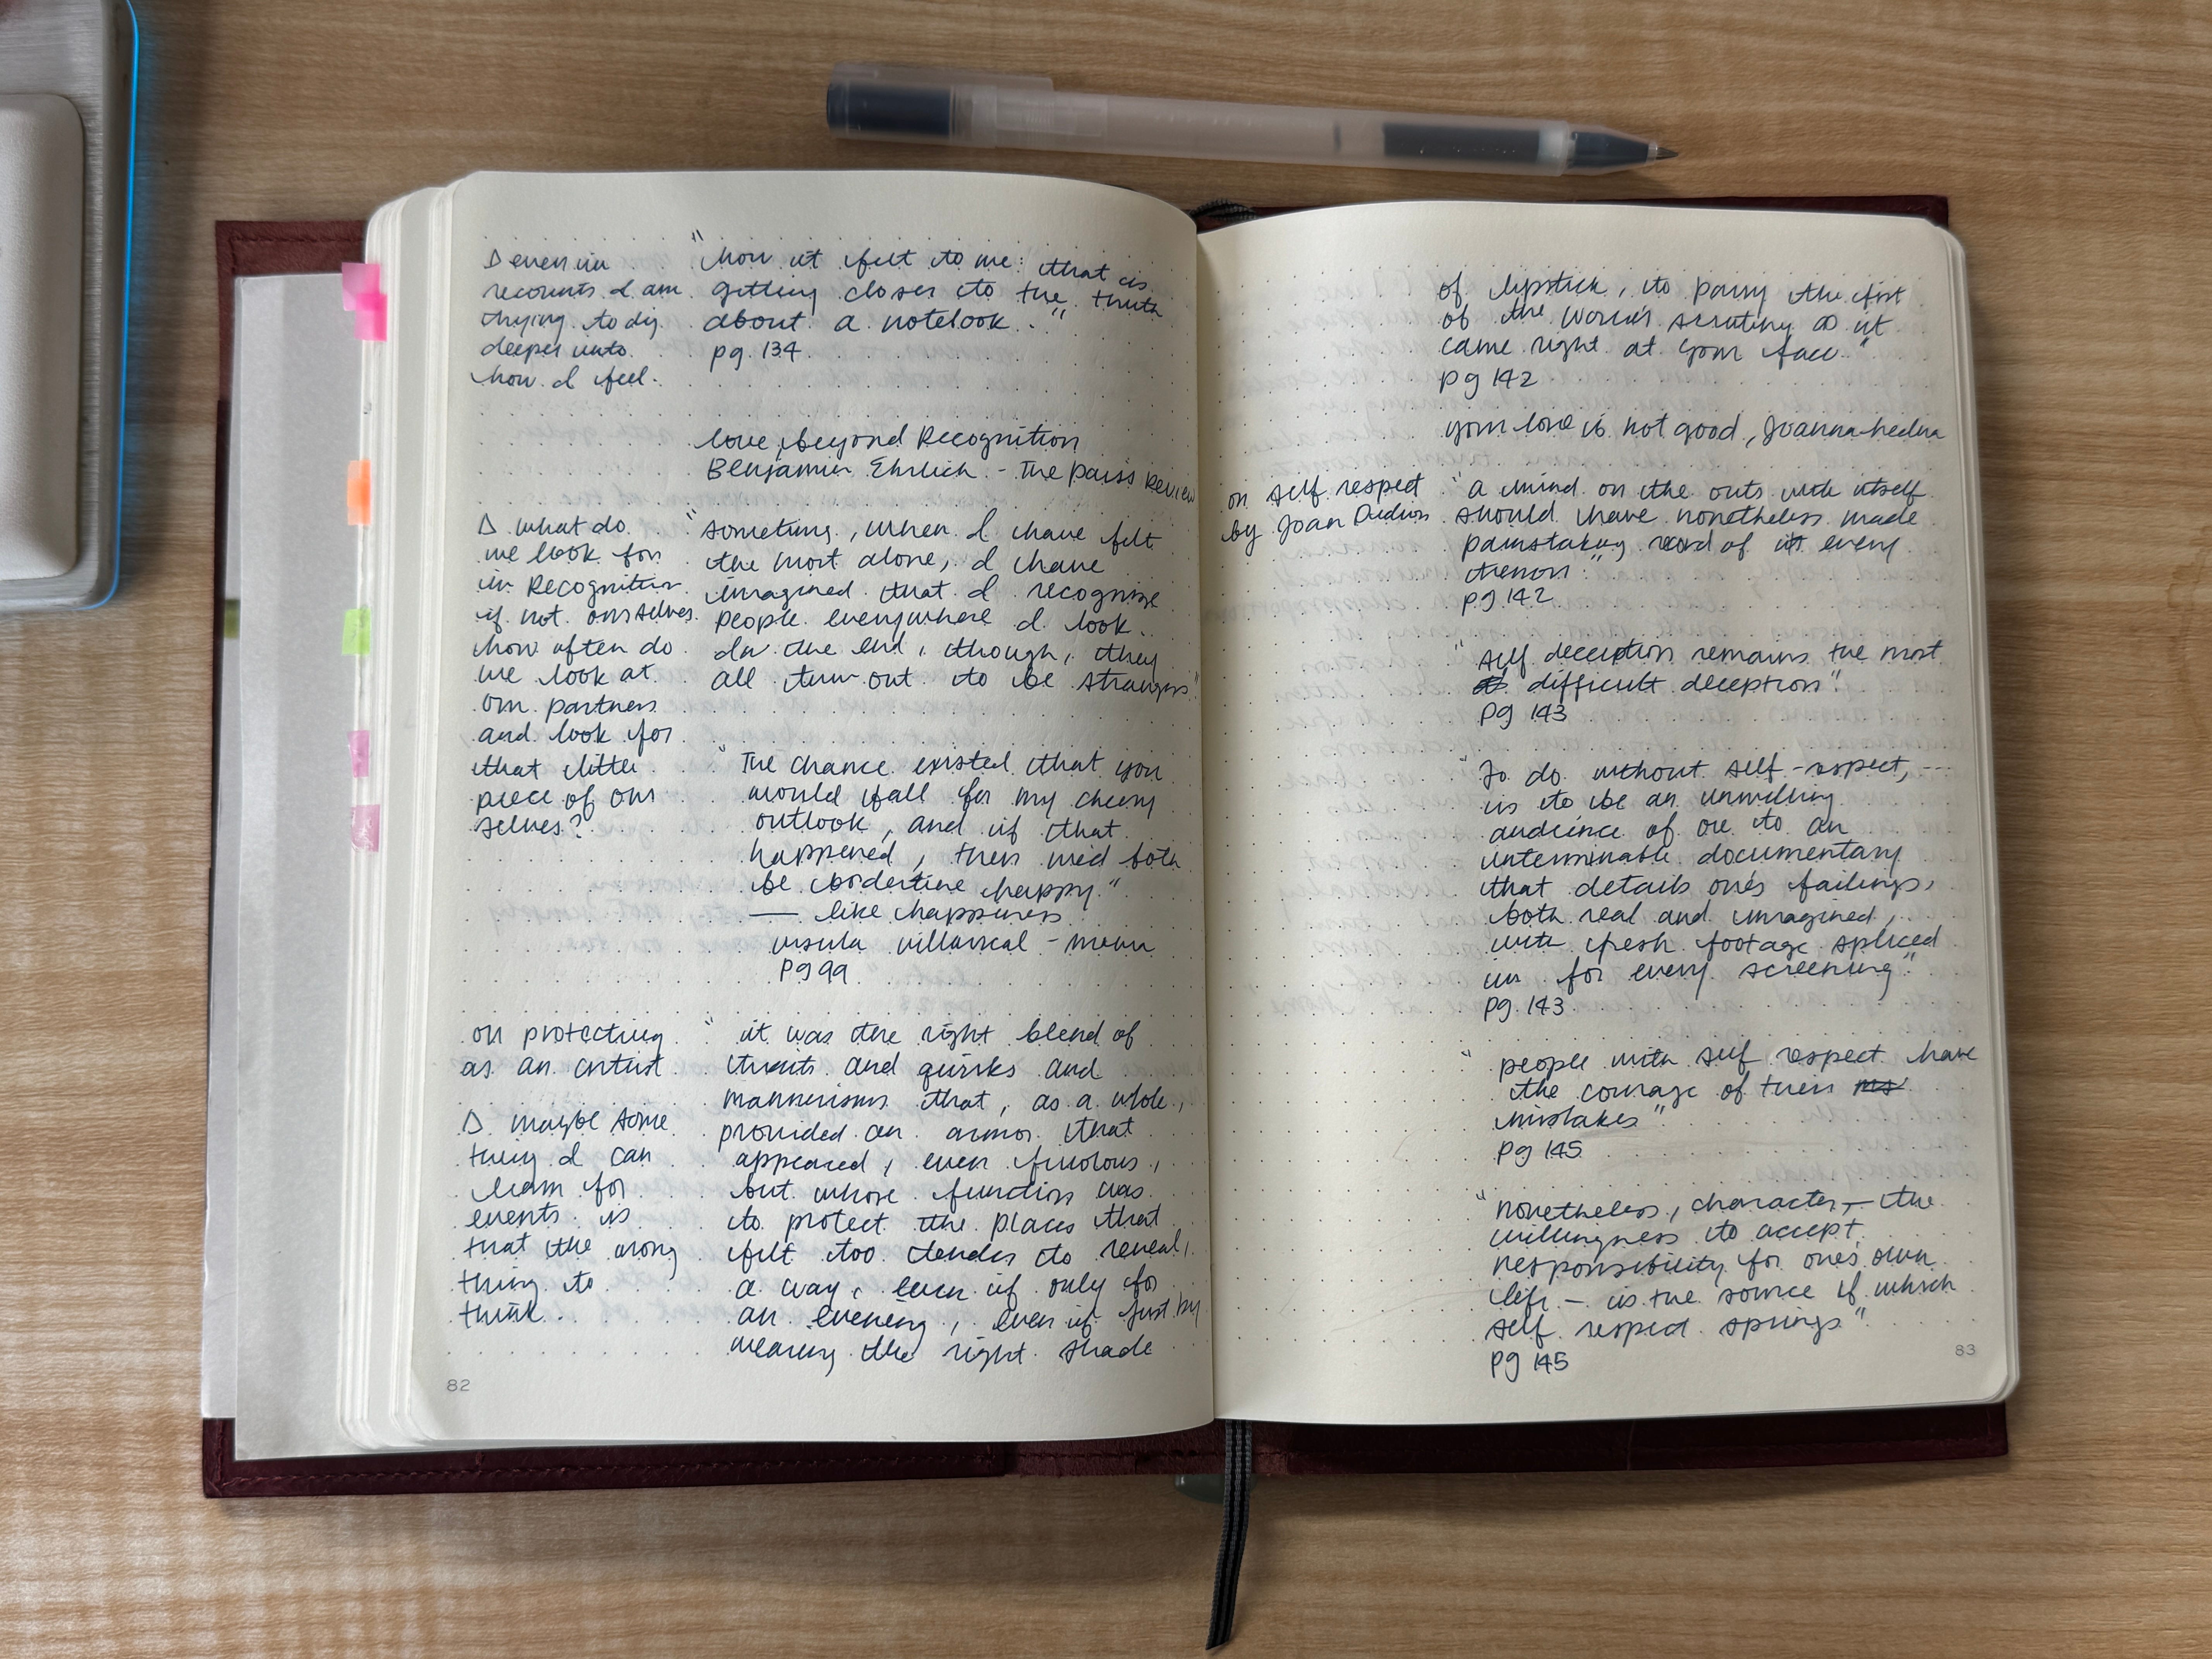 ▷ even in
recounts I am
trying to dig
deeper into
how I feel.
"how it felt to me: that is
getting closer to the truth
about a notebook."
pg. 134
love beyond Recognition
Benjamin Ehrlich - The Paris Review
▷ what do
we look for
in Recognition
if not ourselves.
how often do
we look at
our partners
and look for
that little
piece of our
selves?
"sometimes, when I have felt
the most alone, I have
imagined that I recognize
people everywhere I look.
In the end, though, they
all turn out to be strangers"
"The chance existed that you
would fall for my cheery
outlook, and if that
happened, then we'd both
be borderline happy."
— like happiness
ursula villarreal-moura
pg 99
on protecting
as an artist
▷ maybe some
thing I can
learn for
events is
that the wrong
thing to
think.
"it was the right blend of
traits and quirks and
mannerisms that, as a whole,
provided an armor that
appeared, even frivolous,
but whose function was
to protect the places that
felt too tender to reveal,
a way, even if only for
an evening, even if just by
wearing the right shade
82
of lipstick, to parry the fist
of the world's scrutiny as it
came right at your face."
pg 142
your love is not good, Joanna hedva
on self respect
by Joan Didion
"a mind on the outs with itself
should have nonetheless made
painstaking record of its every
tremor."
pg 142
"self deception remains the most
difficult deception".
pg 143
"To do without self-respect, --
is to be an unwilling
audience of one to an
interminable documentary
that details one's failings,
both real and imagined,
with fresh footage spliced
in for every screening"
pg. 143
"people with self respect have
the courage of their ms
mistakes"
pg 145
"nonetheless, character, — the
willingness to accept
responsibility for one's own
life — is the source if which
self respect springs"
pg 145
83